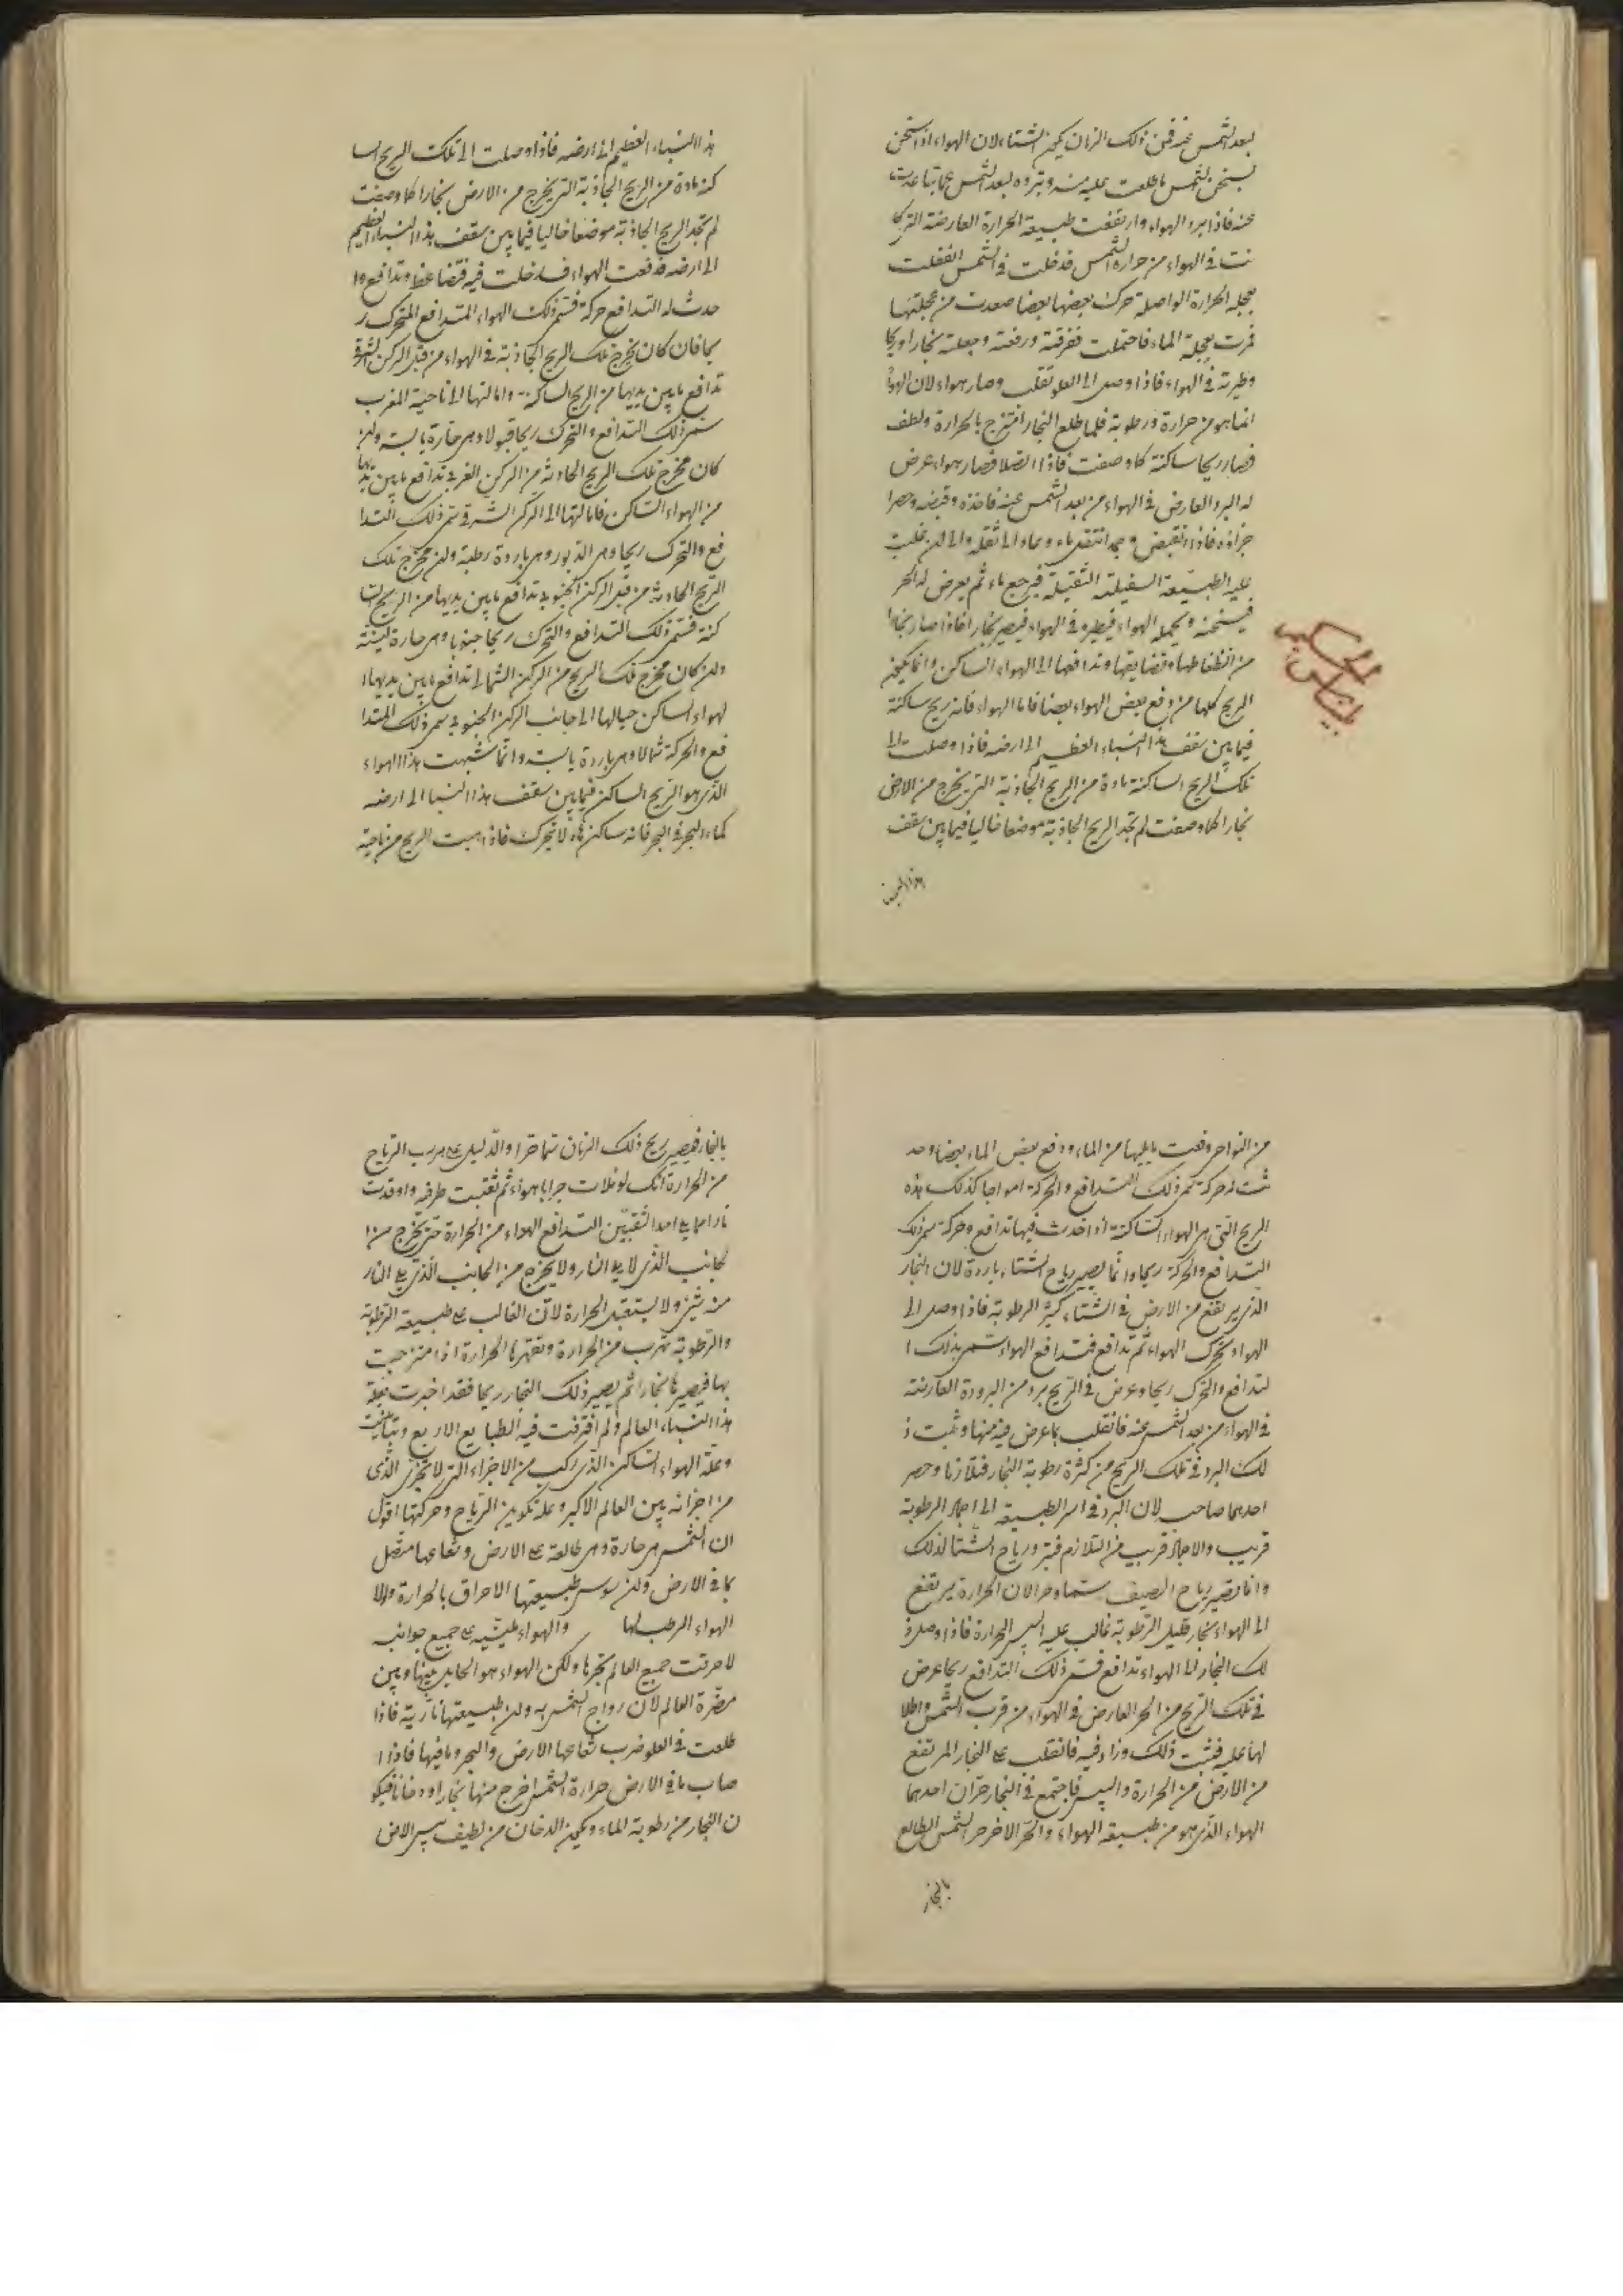 بعد الشمس عنه فمن ذلك الزمان يكون الشتاء لان الهواء اذا سخن
يسخن لشمس ما طلعت عليه منه وتبرده لبعد الشمس عما تباعدت
عنه فاذا برد الهواء وارتفعت طبيعة الحرارة العارضة التي كا
نت في الهواء من حرارة الشمس فدخلت في الشمس انفغلت
بعجلة الحرارة الواصلة حرك بعضها بعضا صعدت من عجلتها
فمرت بعجلة الماء فاحتملت ففرقته ورفعته وجعلته بخارا وريحا
وطيرته في الهواء فاذا وصل الى العلو تقلب وصار هواء لان الهوا
انما هو من حرارة ورطوبة فلما طلع البخار امتزج بالحرارة ولطف
فصار ريحا ساكنة كما وصفت فاذا اتصلا فصار هواء عرض
له البرد العارض في الهواء من بعد الشمس عنه فاخذه وقبضه وحصرا
جزاؤه فاذا انقبض وجمد انتقد ماء وعاد الى ثقله والى لن غلبت
عليه الطبيعة السفيلة الثقيلة فيرجع ماء ثم يعرض له الحر
فيسخنه ويحمله الهواء فيطيره في الهواء فيصير بخارا فاذا صار بخارا
من انظغاطها وتضايقها وتدافعها الى الهواء الساكن وانما يكون
الريح كلها من دفع بعض الهواء بعضا فاما الهواء فانه ريح ساكنة
فيما بين سقف هذا البناء العظيم الى ارضه فاذا وصلت الى
تلك الريح الساكنة مادة من الريح الجاذبة التي يخرج من الارض
بخارا كما وصفت لم تجد الريح الجاذبة موضعا خاليا فيما بين سقف
هذا البناء
هذا البناء العظيم الى ارضه فاذا وصلت الى تلك الريح السا
كنة مادة من الريح الجاذبة التي يخرج من الارض بخارا كما وصفت
لم تجد الريح الجاذبة موضعا خاليا فيما بين سقف هذا البناء العظيم
الى ارضه فدفعت الهواء فدخلت فيه فتضاغط وتدافع وا
حدث له التدافع حركة فتسمى ذلك الهواء المتدافع المتحرك ر
يحا فان كان يخرج تلك الريح الجاذبة في الهواء من قبل الركن الشرقي
تدافع ما بين يديها من الريح الساكنة وامالتها الى ناحية المغرب
سمى ذلك التدافع والتحرك ريحا قبولا وهي حارة يابسة ولن
كان مخرج تلك الريح الحادثة من الركن الغربي تدافع ما بين يديها
من الهواء الساكن فامالتها الى الركن الشرقي سمى ذلك التدا
فع والتحرك ريحا وهي الدبور وهي باردة رطبة ولن مخرج تلك
الريح الحادثة من قبل الركن الجنوبي تدافع ما بين يديها من الريح السا
كنة فتسمى ذلك التدافع والتحرك ريحا جنوبا وهي حارة لينة
ولن كان مخرج تلك الريح من الركن الشمالي تدافع ما بين يديها ا
لهواء الساكن حيالها الى جانب الركن الجنوبي سمى ذلك المتدا
فع والحركة شمالا وهي باردة يابسة وانما شبهت هذا الهواء
الذي هو الريح الساكن فيما بين سقف هذا البناء الى ارضه
كماء البحر في البحر فانه ساكن لا تحرك فاذا هبت الريح من ناحية
من النواحي وقعت ما يليها من الماء ودفع بعض الماء بعضا وحد
ثت له حركة سمى ذلك التدافع والحركة امواجا كذلك هذه
الريح التي هي الهواء الساكنة اذا حدث فيها تدافع وحركة سمى ذلك
التدافع والحركة ريحا وانما يصير رياح الشتاء باردة لان البخار
الذي يرتفع من الارض في الشتاء كثير الرطوبة فاذا وصل الى
الهواء تحرك الهواء ثم تدافع فتدافع الهواء سمى بذلك ا
لتدافع والتحرك ريحا وعرض في الريح برد من البرودة العارضة
في الهواء من بعد الشمس عنه فانقلب بما عرض فيه منها وثبت ذ
لك البرد في تلك الريح من كثرة رطوبة البخار فتلازما وحصر
احدهما صاحبه لان البرد في اسر الطبيعة الى اجماد الرطوبة
قريب والاجماد قريب من التلازم فتبرد رياح الشتا لذلك
وانما يصير رياح الصيف سمّا وحرا لان الحرارة يرتفع
الى الهواء بخار قليل الرطوبة غالب عليه اليبس الحرارة فاذا وصل ذ
لك البخار الى الهواء تدافع فسمى ذلك التدافع ريحا عرض
في تلك الريح من الحر العارض في الهواء من قرب الشمس واطلا
لها عليه فثبت ذلك وزاد فيه فانقلب على البخار المرتفع
من الارض من الحرارة واليبس فاجتمع في البخار حرّان احدهما
الهواء الذي هو من طبيعة الهواء والحر الاخر حر الشمس الطالع
بالبخار
بالبخار فيصير ريح ذلك الزمان سمّا حرّا والدليل على هرب الرياح
من الحرارة انك لو ملات جرابا هواء ثم ثقبت طرفه واوقدت
نارا مما يلي احد الثقبين التدافع الهواء من الحرارة حتى يخرج من ا
لجانب الذي لا يلي النار ولا يخرج من الجانب الذي يلي النار
منه شيء ولا يستقبل الحرارة لان الغالب على طبيعة الرطوبة
والرطوبة تهرب من الحرارة وتقهرها الحرارة اذا امتزجت
بها فيصيرها بخارا ثم يصير ذلك البخار ريحا فقد اخبرت بعلة
هذا البناء العالم ولم افترقت فيه الطبايع الاربع وتباينت
وعلة الهواء الساكن الذي ركب من الاجزاء التي لا تتجزى الذي
من اجزائه بين العالم الاكبر وعلة تكوين الرياح وحركتها اقول
ان الشمس هي حارة وهي طالعة على الارض وشعاعها متصل
بما في الارض ولن سوس طبيعتها الاحراق بالحرارة ولولا
الهواء الرطب لها والهواء على جميع جوانبه
لاحرقت جميع العالم بحرها ولكن الهواء هو الحايل بينها وبين
مضرة العالم لان رواج الشمس به ولن طبيعتها نارية فاذا
طلعت في العلو ضرب شعاعها الارض والبحر وما فيها فاذا ا
صاب ما في الارض حرارة الشمس اخرج منها بخارا ودخانا فيكو
ن البخار من رطوبة الماء ويكون الدخان من لطيف يبس الارض